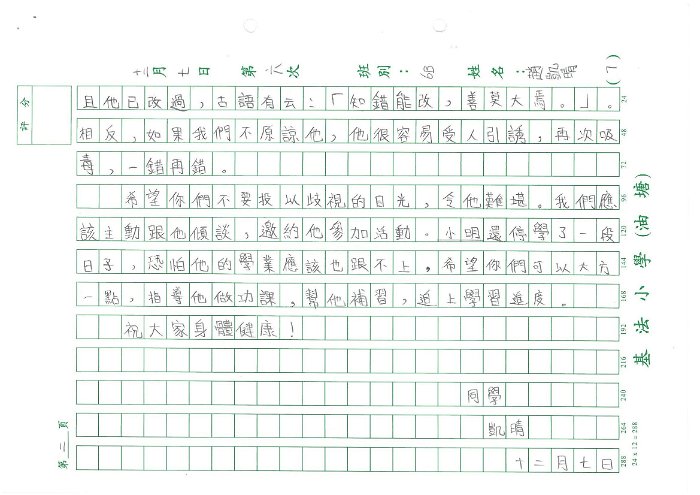 十二月七日 第六次 班別：6B 姓名：凱晴 (7)
評分
且他已改過，古語有云：「知錯能改，善莫大焉。」。
相反，如果我們不原諒他，他很容易受人引誘，再次吸
毒，一錯再錯。
希望你們不要投以歧視的目光，令他難堪。我們應
該主動跟他傾談，邀約他參加活動。小明還停學了一段
日子，恐怕他的學業應該也跟不上，希望你們可以大方
一點，指導他做功課，幫他補習，追上學習進度。
祝大家身體健康！
同學
凱晴
十二月七日
24
48
72
96
120
144
168
192
216
240
264
288
24 x 12 = 288
基法小學（油塘）
第二頁